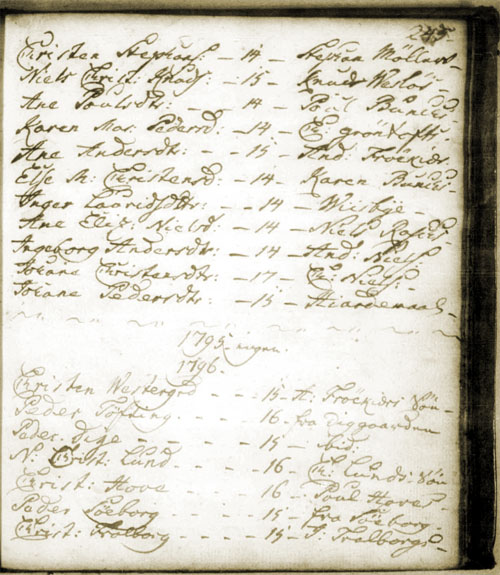 245.
Christen Stephans: — 14 — Stephan Møllers
Niels Christ: Knuds: — 15 — Knuds
Ane Poulsdtr: — 14 — Poul
Karen Mar. Pedersd: — 14 — Ch: Grøntofts
Ane Andersdtr: — 15 — And: Frøekiers
Else M: Christensd: — 14 — Karen
Inger Lauridsdtr: — 14 — Wiisbÿe
Ane Eliz: Nielsd: — 14 — Niels
Ingeborg Andersdtr: — 14 — And: Niels
Johane Christensdtr: — 17 — Ch: Niels:
Johane Pedersdtr: — 15 — Hiardemaals
1795 — ingen.
1796.
Christen Westergrd — 15 — A: Froekiers Søn
Peder Tøfting — 16 — fra Diggaarden
Peder Dige — 15 — ibid:
N. Christ: Lund — 16 — Ch: Lunds Søn
Christ: Hove — 16 — Poul Hoves
Peder Søeborg — 15 — fra Søeborg
Christ: Tralborg — 15 — P: Tralborgs